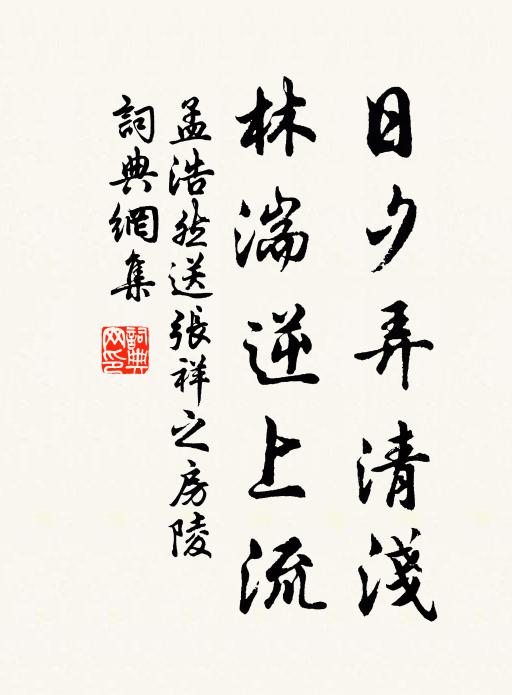 日夕弄清淺
林湍逆上流
孟浩然送張祥之房陵
詞典網集
詞典網印